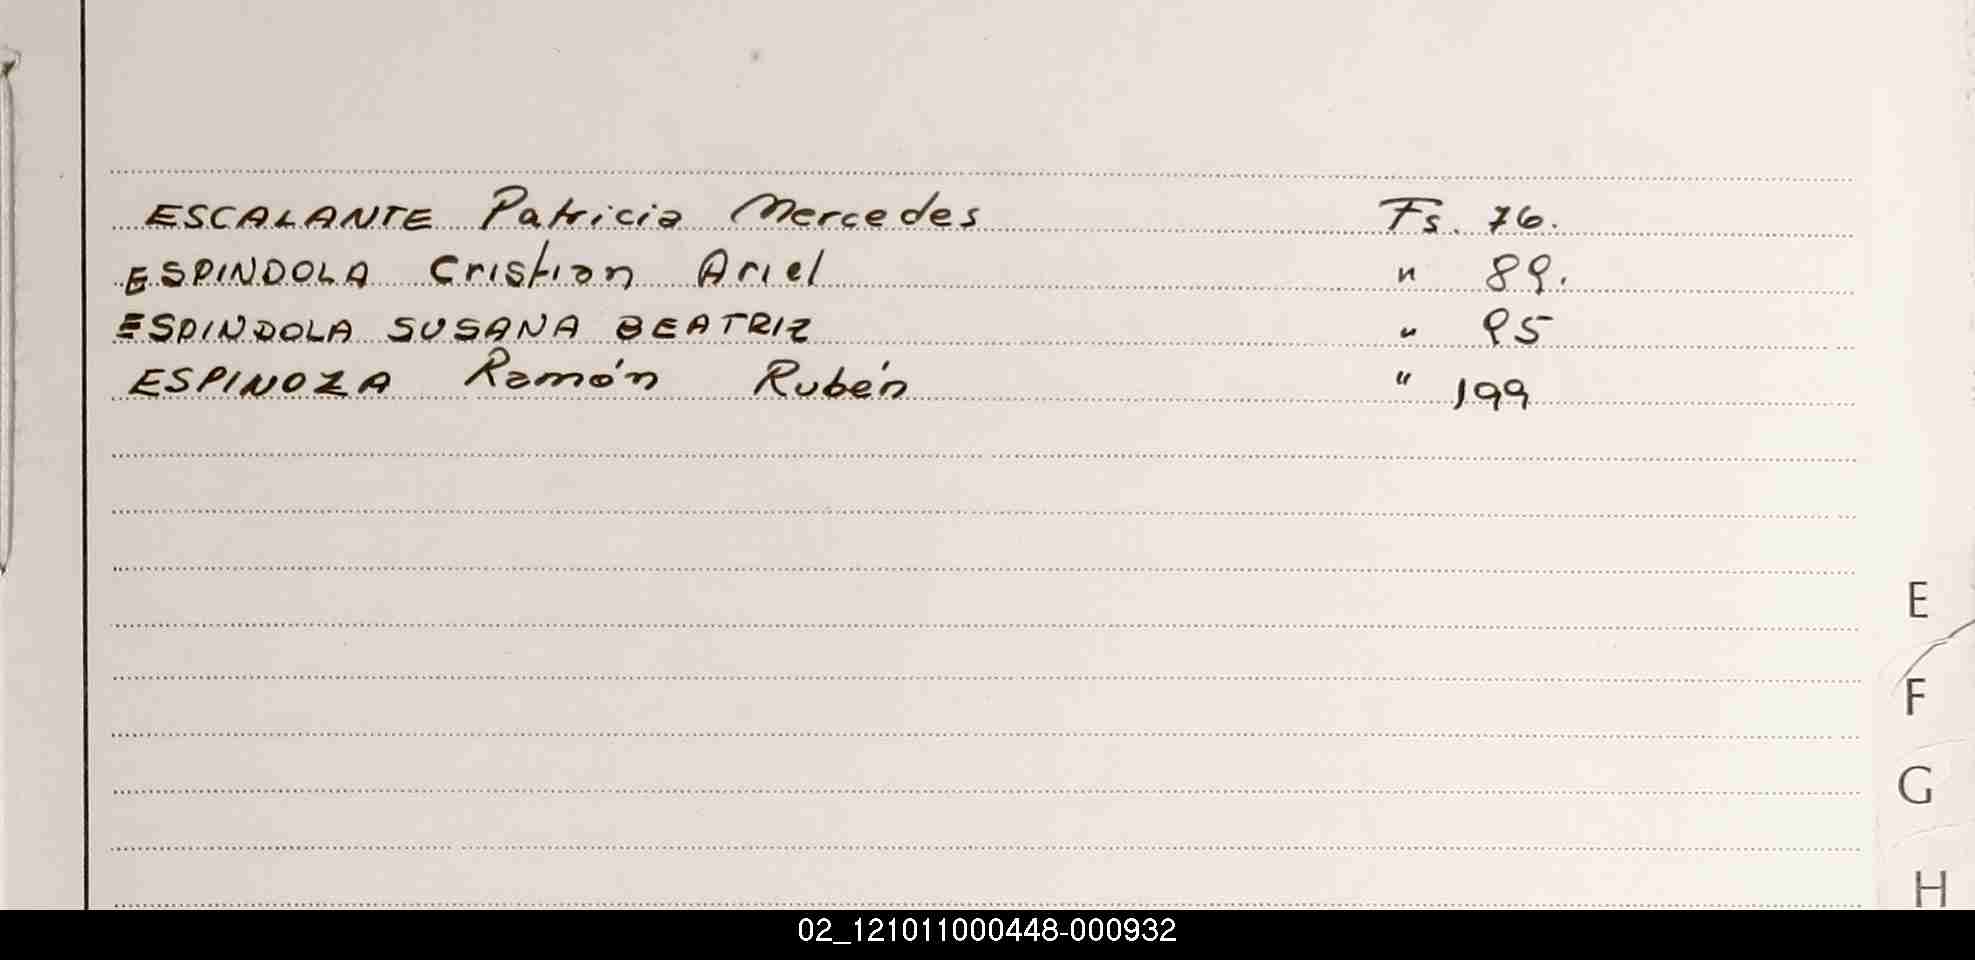 ESCALANTE Patricia Mercedes Fs. 76.
ESPINDOLA Cristian Ariel " 89.
ESPINDOLA SUSANA BEATRIZ " 95
ESPINOZA Ramón Rubén " 199
E
F
G
H
02_121011000448-000932